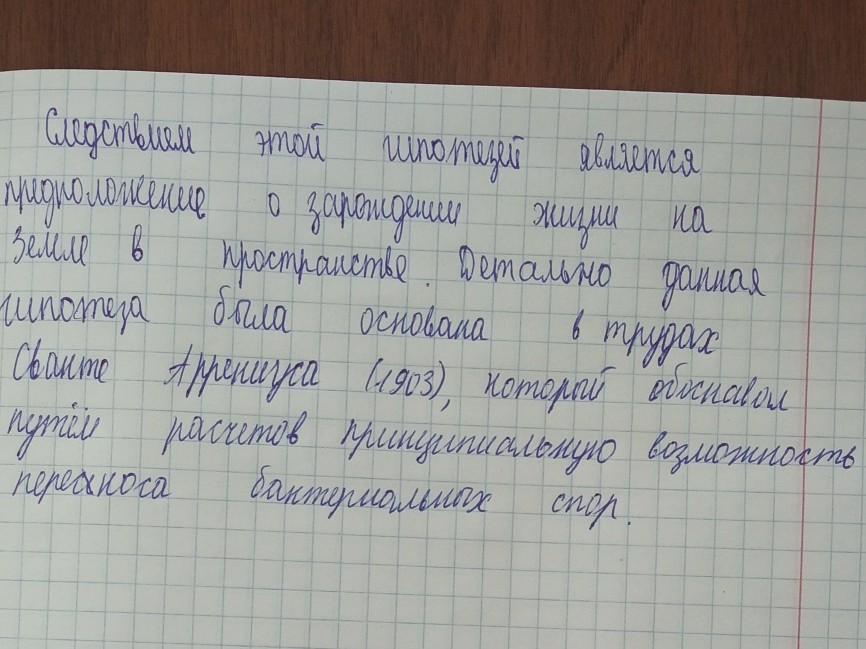 Следствием этой гипотезей является
предположение о зарождении жизни на
Земле в пространстве. Детально данная
гипотеза была основана в трудах
Сванте Аррениуса (1903), который обосновал
путём расчетов принципиальную возможность
переноса бактериальных спор.